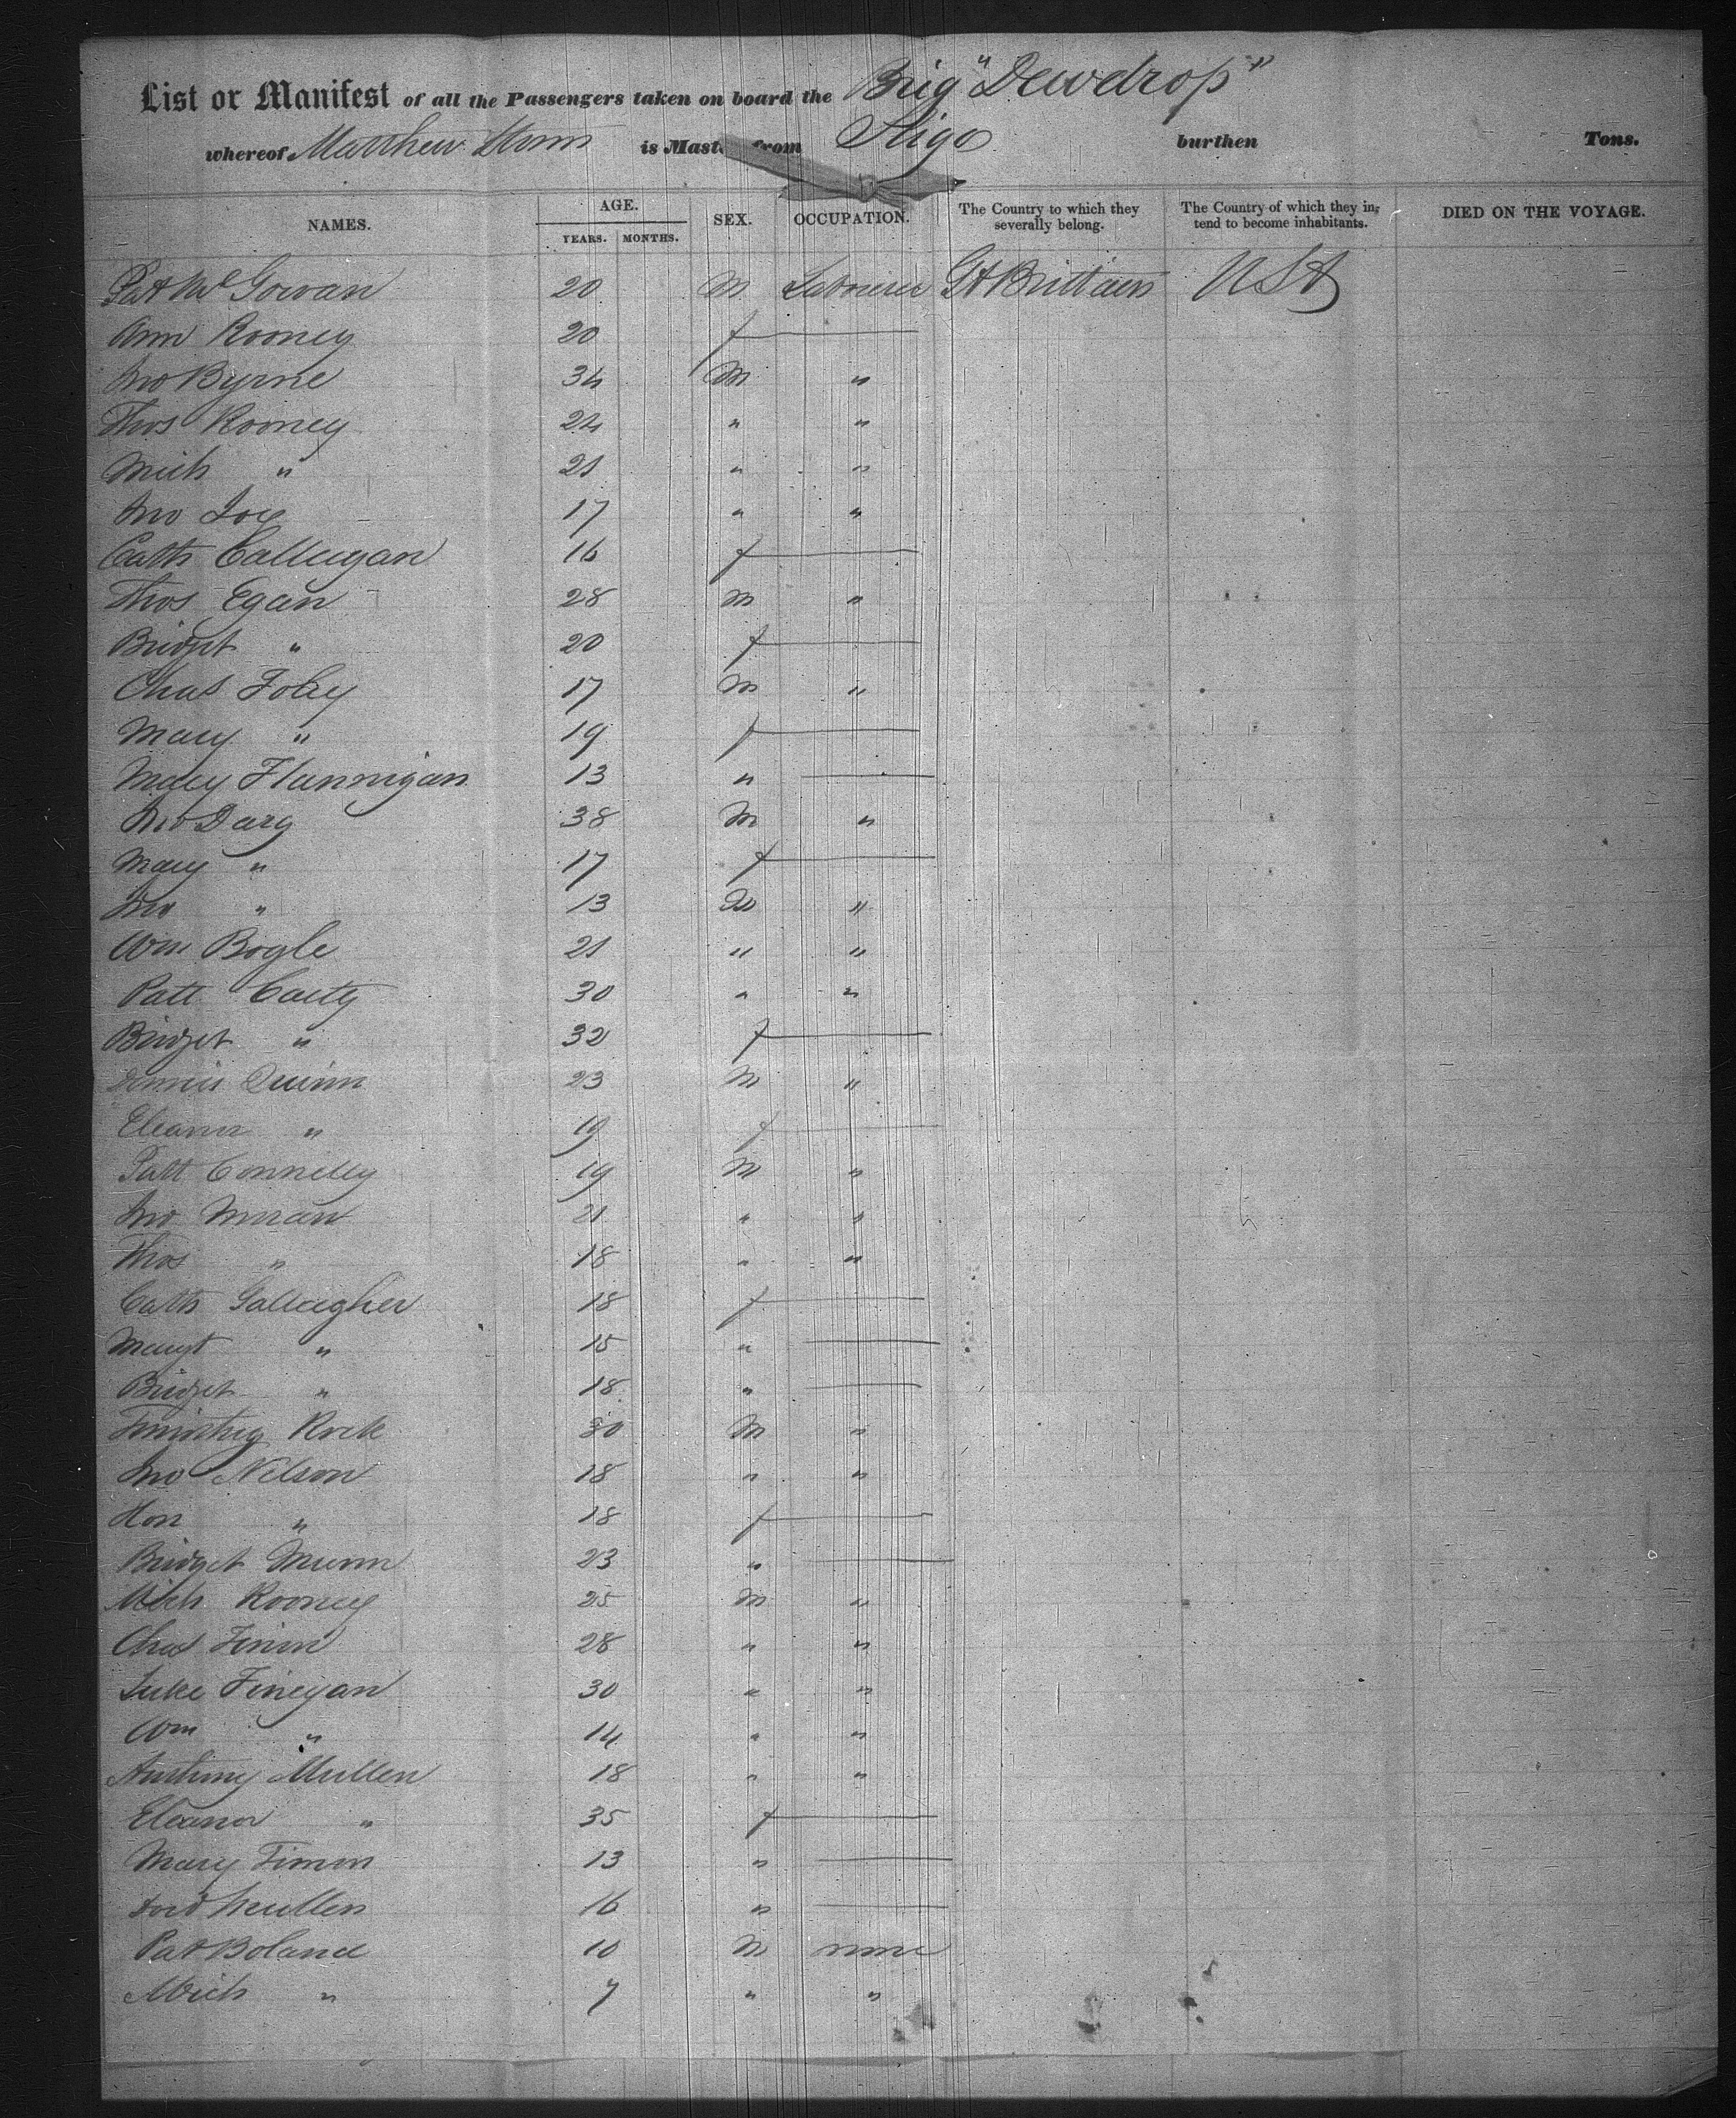 List or Manifest of all the Passengers taken on board the Brig "Dewdrop"
whereof Matthew is Master from Sligo burthen Tons.
NAMES. AGE. YEARS. MONTHS. SEX. OCCUPATION. The Country to which they severally belong. The Country of which they intend to become inhabitants. DIED ON THE VOYAGE.
Pat McGowan 20 M Labourer Gt Brittain USA
Ann Rooney 20 f
Jno Byrne 34 M "
Thos Rooney 24 " "
Mich " 21 " "
Jno 17 " "
Cath Calleigan 16 f
Thos Egan 28 M "
Bridget " 20 f
Chas Foley 17 M "
Mary " 19 f
Mary Flannigan 13 "
Jno Darg 38 M "
Mary " 17 f
Jno " 13 M "
Wm Bogle 21 " "
Patt Carty 30 " "
Bridget " 32 f
Dennis Quinn 23 M "
Eleanor " 19 f
Patt Connelly 19 M "
Jno Moran 21 " "
Thos " 18 " "
Cath Gallagher 18 f
Margt " 15 "
Bridget " 18 "
Timothy Rock 30 M "
Jno Nelson 18 " "
Hon " 18 f
Bridget Munn 23 "
Mich Rooney 25 M "
Chas 28 " "
Luke Finegan 30 " "
Wm " 14 " "
Anthony Mullen 18 " "
Eleanor " 35 f
Mary 13 "
Mullen 16 "
Pat Boland 10 M none
Mich " 7 " "